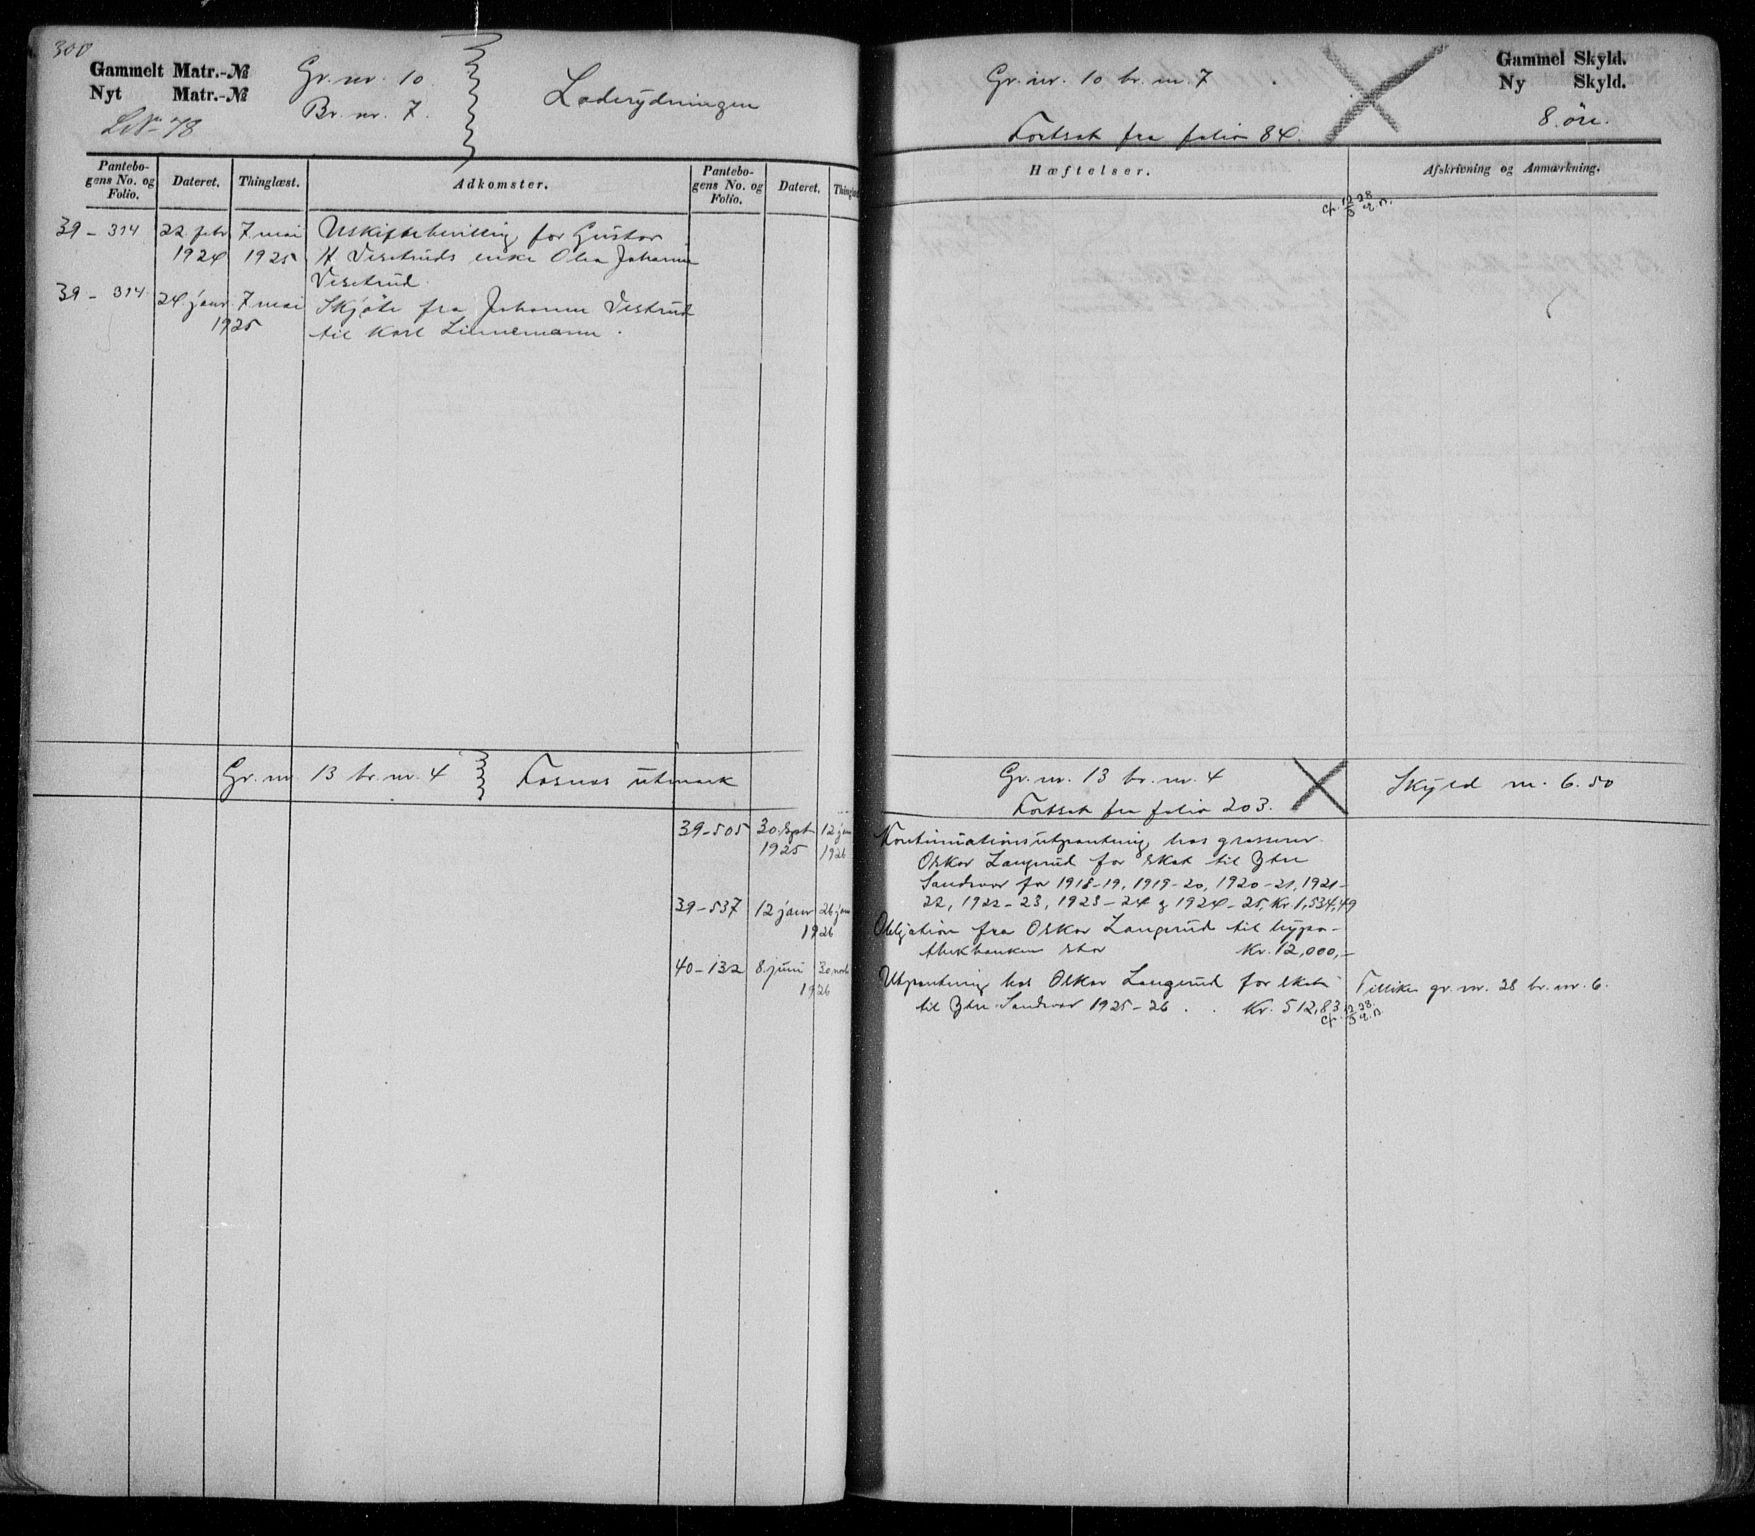 300
Gammelt Matr.-№ Gr. nr. 10
Nyt Matr.-№ Br. nr. 7. Laderydningen
78
Pantebo-gens No. og Folio. Dateret. Thinglæst. Adkomster. Pantebo-gens No. og Folio. Dateret.
39 - 314 22. febr 7 mai Uskiftebevilling for Gustav
1924 1925 H. Vestruds enke Olea Johanne
Vestrud
39 - 314 24 janr. 7 mai Skjøte fra Johanne Vestrud
1925 til Karl Linnemann.
Gr. nr 13 br. nr. 4 Fosnes utmark
39-505 30. sept 12 jan
1925 1926
39-537 12 janr 26 jan
1926
40-132 8. juni 30
1926
Gr. nr. 10 br. nr. 7 Gammel Skyld.
Ny Skyld.
Fortsat fra folio 84. 8 øre.
Hæftelser. Afskrivning og Anmærkning.
Gr. nr. 13 br. nr. 4 Skyld m. 6.50
Fortsat fra folio 203.
Kontinuationsutpantning hos
Oskar Langerud for skat til Ytre
Sandsvær for 1918-19, 1919-20, 1920-21, 1921-
22, 1922-23, 1923-24 og 1924-25, Kr. 1,534,49
Obligation fra Oskar Langerud til hypo-
tekbanken stor Kr. 12,000,-
Utpantning hos Oskar Langerud for skat Tillike gr. nr. 28 br. nr. 6.
til Ytre Sandsvær 1925-26 . . Kr. 512,83